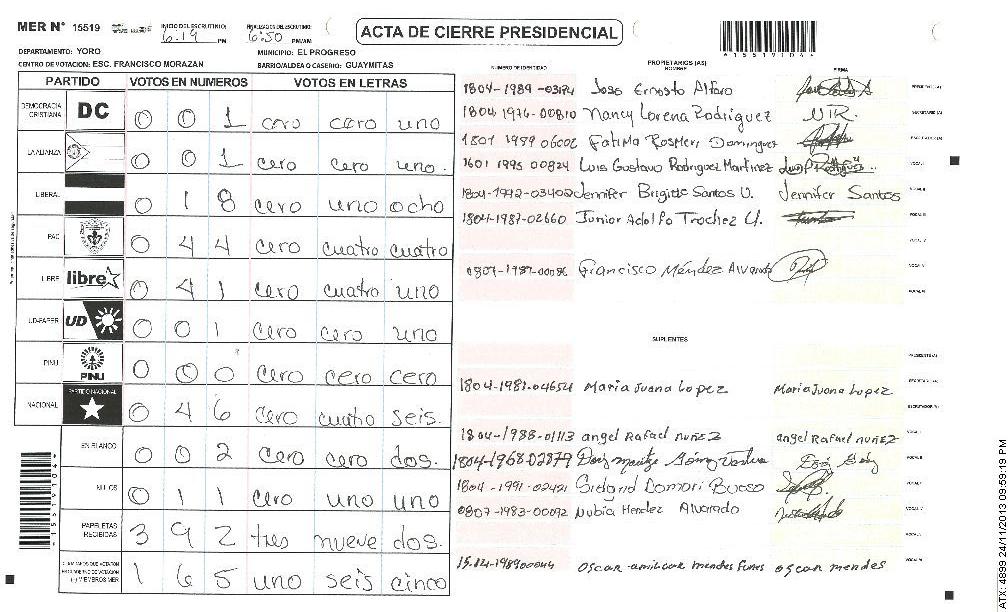 MER N° 15519 INICIO DEL ESCRUTINIO: 6:19 PM FINALIZACION DEL ESCRUTINIO: 6:50 PM/AM ACTA DE CIERRE PRESIDENCIAL
*15519104*
DEPARTAMENTO: YORO MUNICIPIO: EL PROGRESO
CENTRO DE VOTACION: ESC. FRANCISCO MORAZAN BARRIO/ALDEA O CASERIO: GUAYMITAS
PARTIDO VOTOS EN NUMEROS VOTOS EN LETRAS
DEMOCRACIA CRISTIANA DC 0 0 1 cero cero uno
LA ALIANZA 0 0 1 cero cero uno.
LIBERAL 0 1 8 cero uno ocho
PAC 0 4 4 cero cuatro cuatro
LIBRE libre 0 4 1 cero cuatro uno
UD-FAPER UD 0 0 1 cero cero uno
PINU PINU 0 0 0 cero cero cero
NACIONAL PARTIDO NACIONAL 0 4 6 cero cuatro seis.
EN BLANCO 0 0 2 cero cero dos.
NULOS 0 1 1 cero uno uno
PAPELETAS RECIBIDAS 3 9 2 tres nueve dos.
CIUDADANOS QUE VOTARON EN CUADERNO DE VOTACION (+) MIEMBROS MER 1 6 5 uno seis cinco
NUMERO DE IDENTIDAD PROPIETARIOS (AS) NOMBRE FIRMA
Jose Ernesto Alfaro PRESIDENTE (A)
1804-1976-00810 Nancy Lorena Rodriguez SECRETARIO (A)
1801 1989 06002 Fatima Rosmeri Dominguez
1601 1995 00824 Luis Gustavo Rodriguez Martinez VOCAL I
1804-1992-03402 Jennifer Brigitte Santos U. Jennifer Santos VOCAL II
1804-1987-02660 Junior Adolfo Trochez U. VOCAL III
VOCAL IV
Francisco Méndez Alvarado VOCAL V
VOCAL VI
SUPLENTES
PRESIDENTE (A)
1804-1981-04654 Maria Juana Lopez Maria Juana Lopez SECRETARIO (A)
ESCRUTADOR (A)
1804-1988-01113 angel Rafael nuñez angel Rafael nuñez VOCAL I
1804-1968-02879 VOCAL II
1804-1991-02421
0807-1983-00092 Nubia Mendez Alvarado
oscar amilcar mendes funes oscar mendes
*15519104*
ATX: 4899 24/11/2013 09:59:19 PM